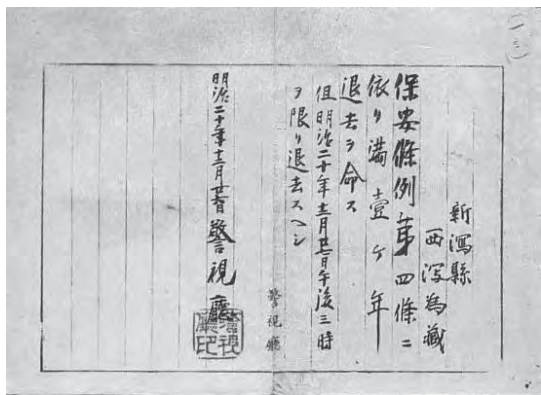 新潟縣
西潟為藏
保安條例第四條ニ
依リ満壹ケ年
退去ヲ命ス
但明治二十年十二月廿八日午後三時
ヲ限リ退去スヘシ
警視廳
明治二十年十二月廿 警視廳
警視廳印